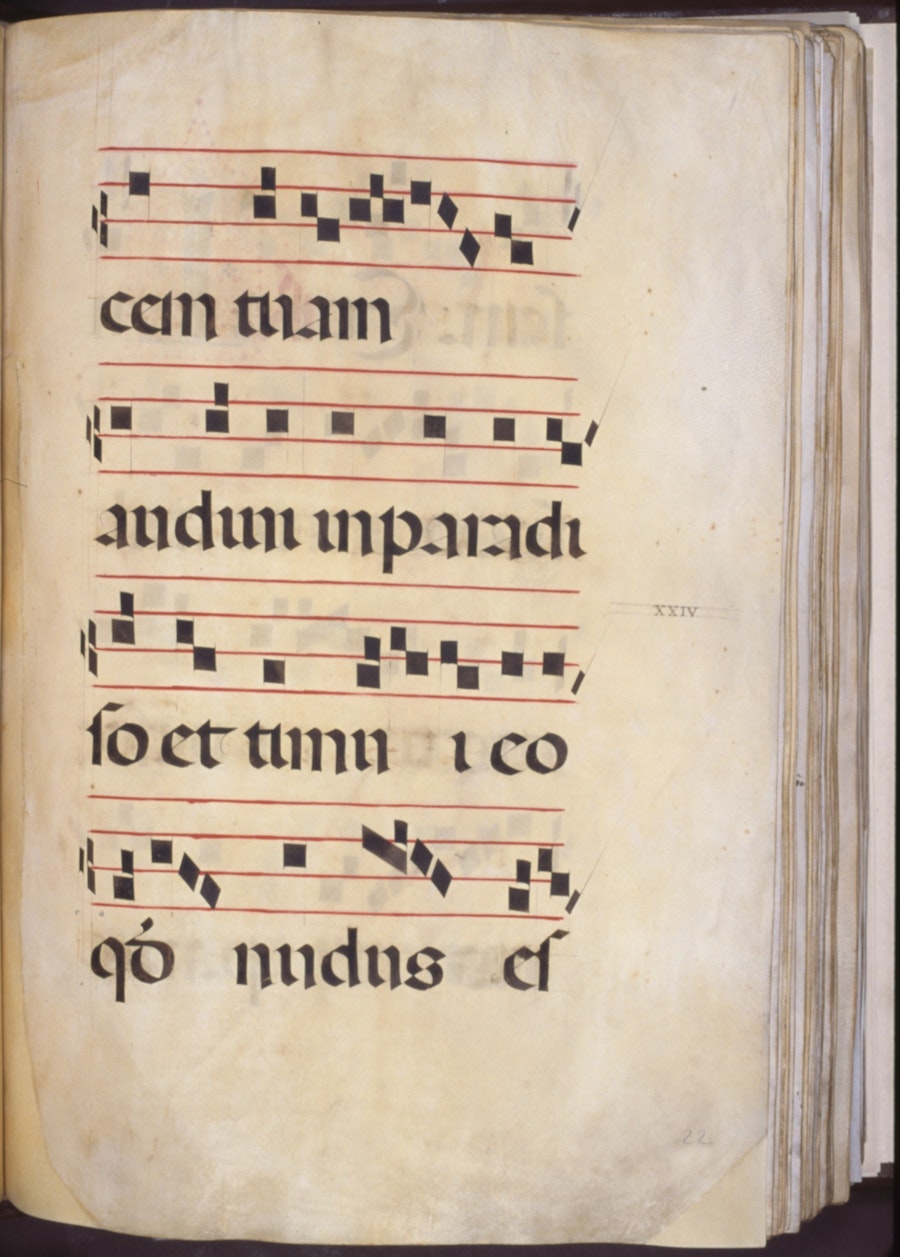 cem tuam
audiui in paradi
XXIV
so et timu i eo
qđ nudus es
22